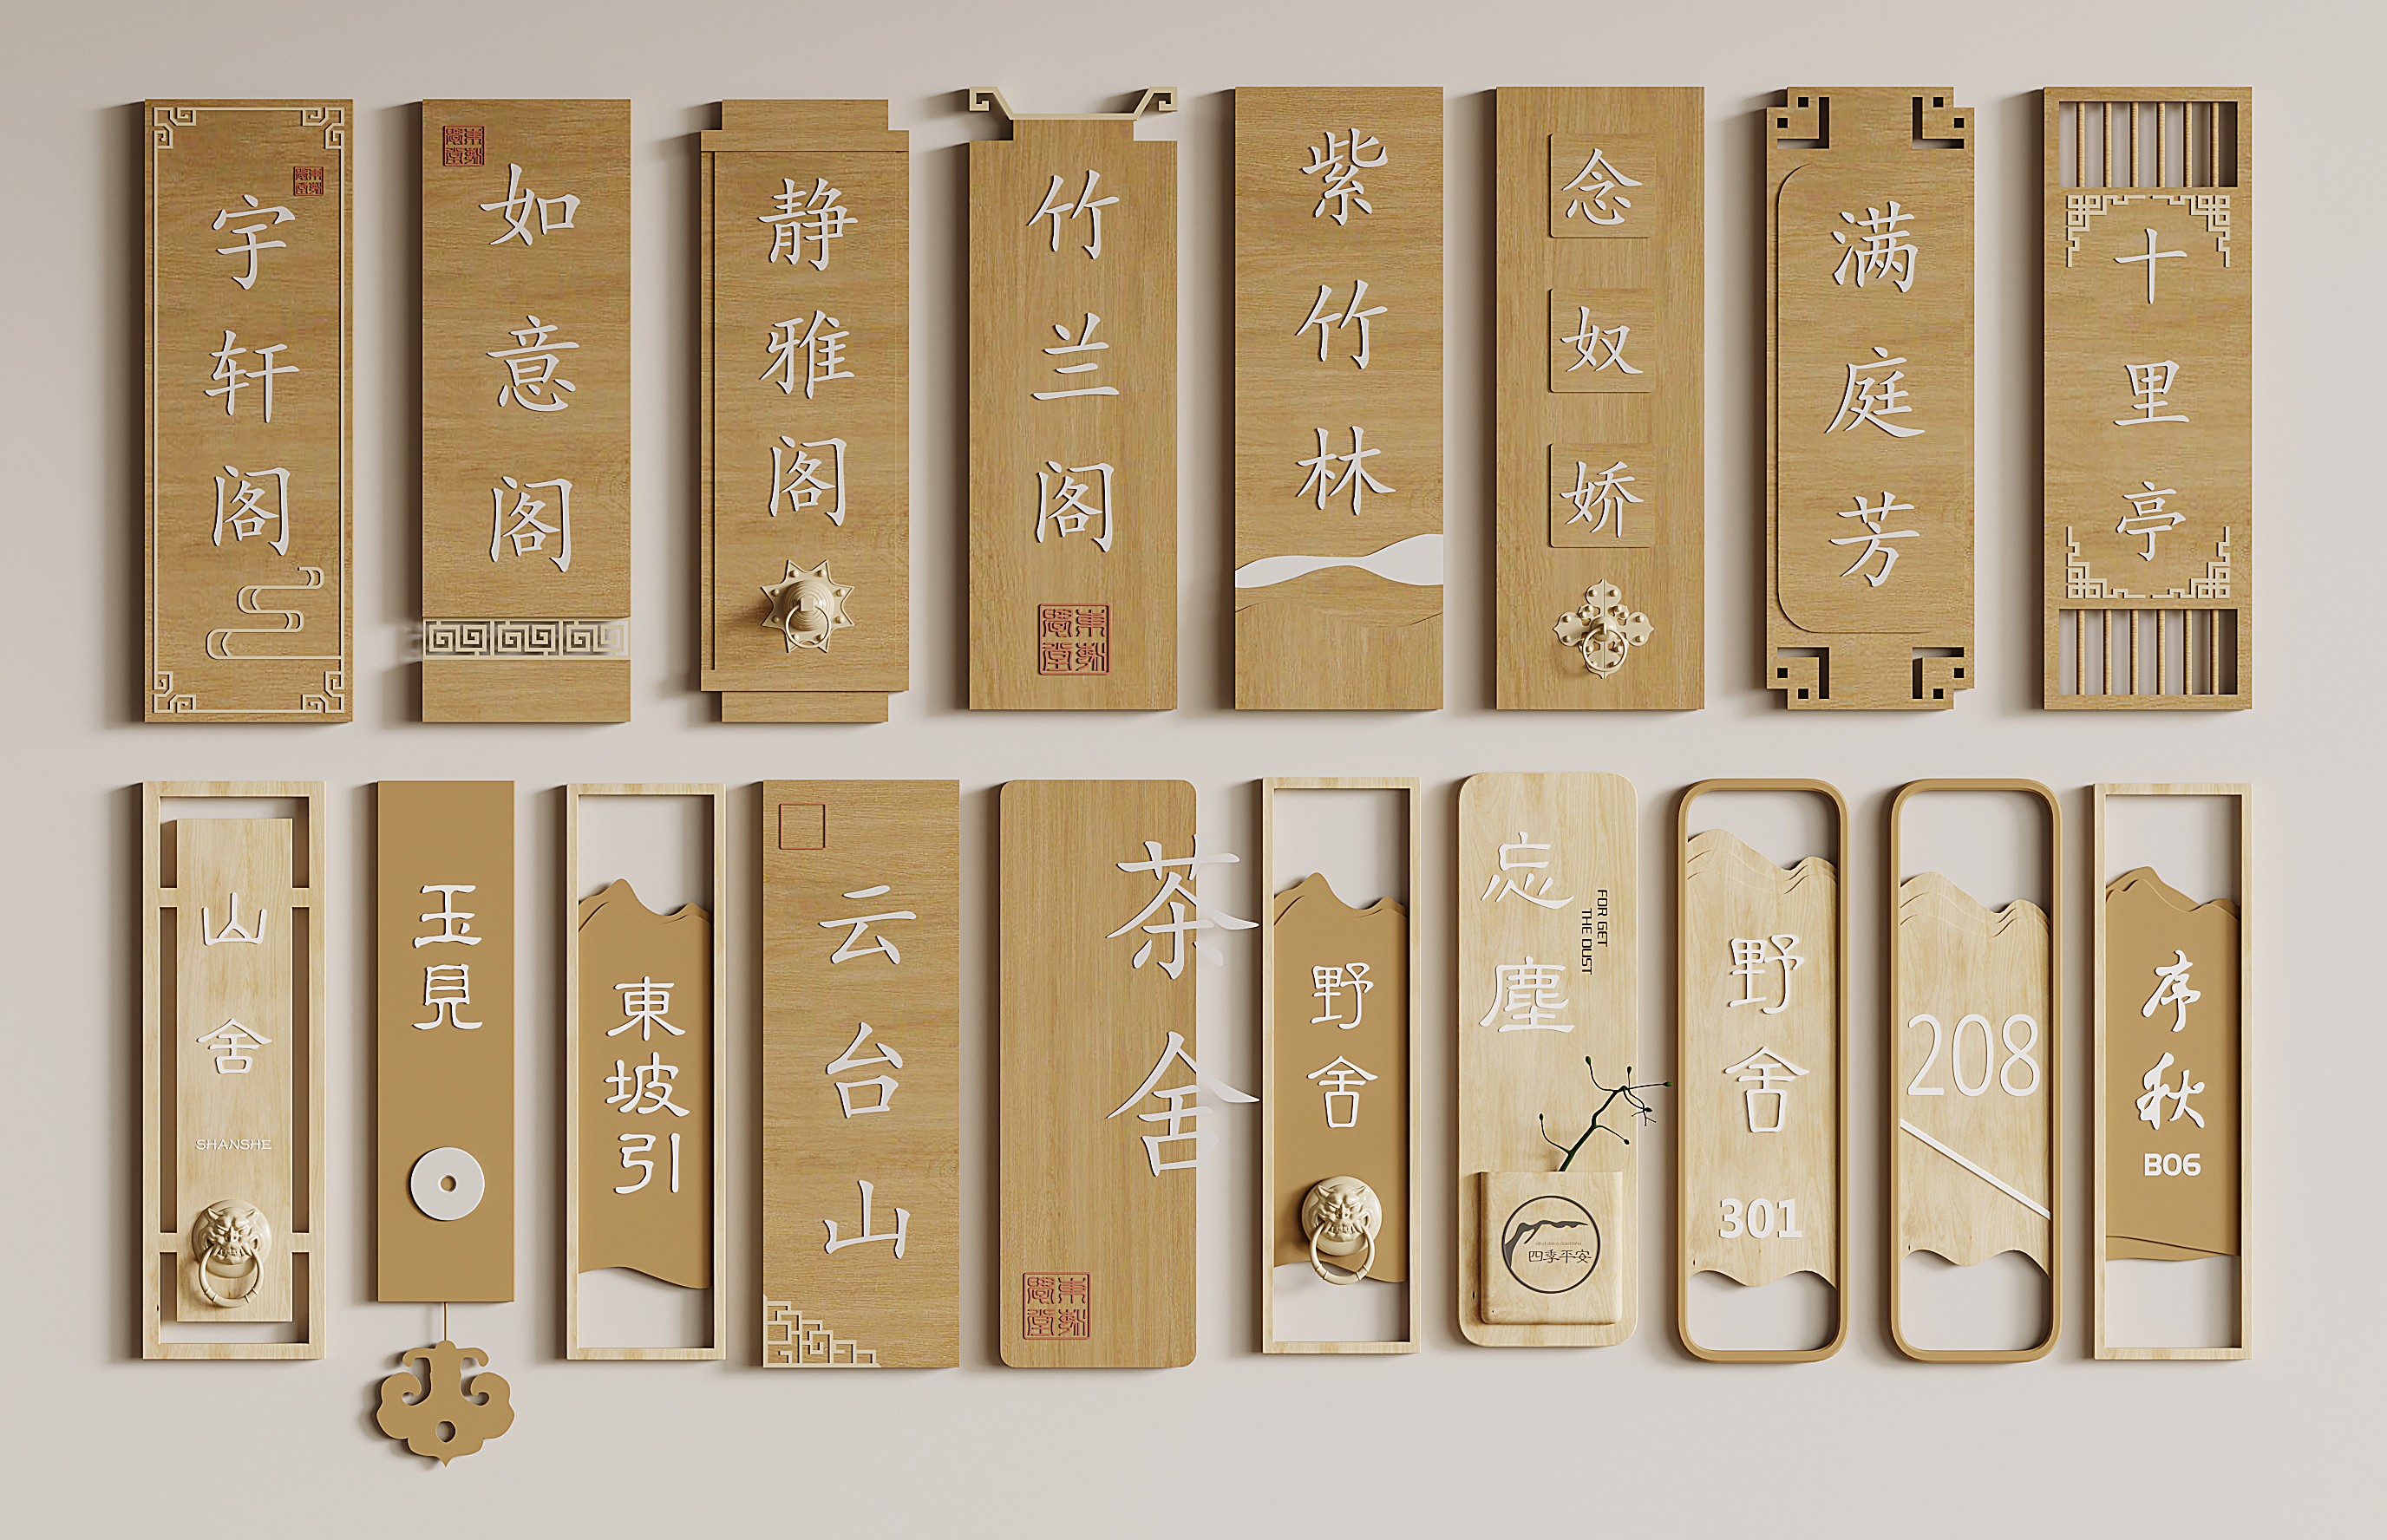 宇轩阁
如意阁
静雅阁
竹兰阁
紫竹林
念奴娇
满庭芳
十里亭
山舍
SHANSHE
玉見
東坡引
云台山
茶舍
野舍
忘塵
FOR GET
THE DUST
四季平安
野舍
301
208
序秋
B06